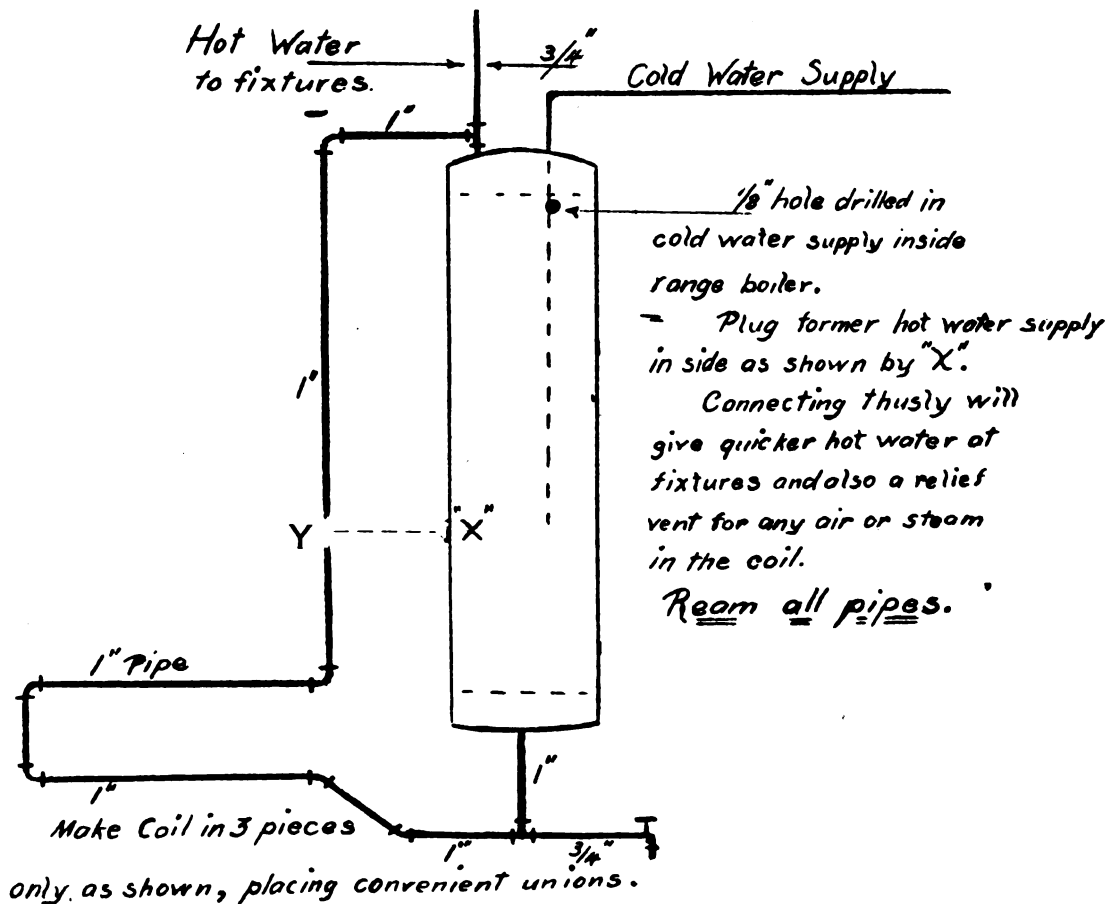 Hot Water
to fixtures.
3/4"
Cold Water Supply
1"
1/8" hole drilled in
cold water supply inside
range boiler.
Plug former hot water supply
in side as shown by "X".
Connecting thusly will
give quicker hot water at
fixtures and also a relief
vent for any air or steam
in the coil.
Ream all pipes.
1"
Y
"X"
1" Pipe
1"
1"
Make Coil in 3 pieces
1"
3/4"
only as shown, placing convenient unions.